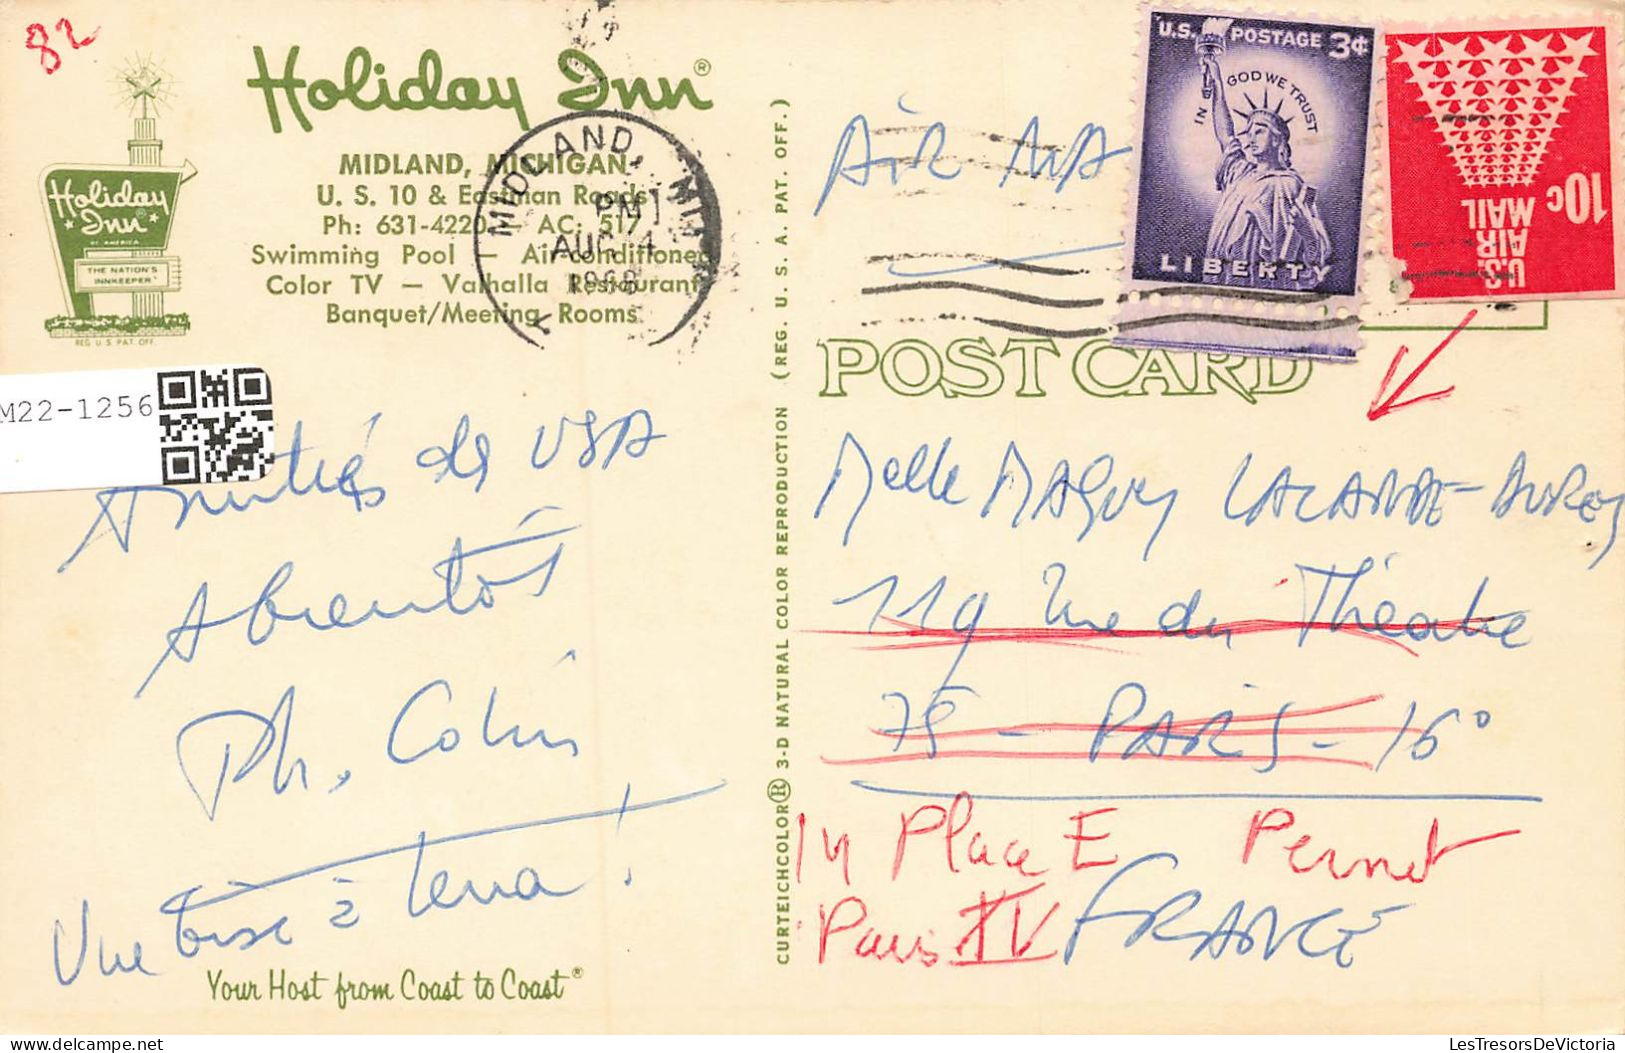 82
Holiday Inn®
MIDLAND, MICHIGAN
U. S. 10 & Eastman Roads
Ph: 631-4220 AC: 517
Swimming Pool — Air-conditioned
Color TV — Valhalla Restaurant
Banquet/Meeting Rooms
Holiday
Inn®
OF AMERICA
THE NATION'S
INNKEEPER
REG. U S PAT. OFF.
MIDLAND, MI
PM
AUG 1
1968
M22-1256
Amitiés de USA
A bientôt
Ph. Colin
Une bise à Lena !
Your Host from Coast to Coast®
CURTEICHCOLOR® 3-D NATURAL COLOR REPRODUCTION (REG. U. S. A. PAT. OFF.)
U.S. POSTAGE 3¢
IN GOD WE TRUST
LIBERTY
10c
U.S.
AIR
MAIL
AIR MA
POST CARD
Melle MAGUY LACLANDE-AUREY
119 Rue du Théatre
75 - PARIS - 16°
14 Place E Pernet
Paris XV FRANCE
LesTresorsDeVictoria.com